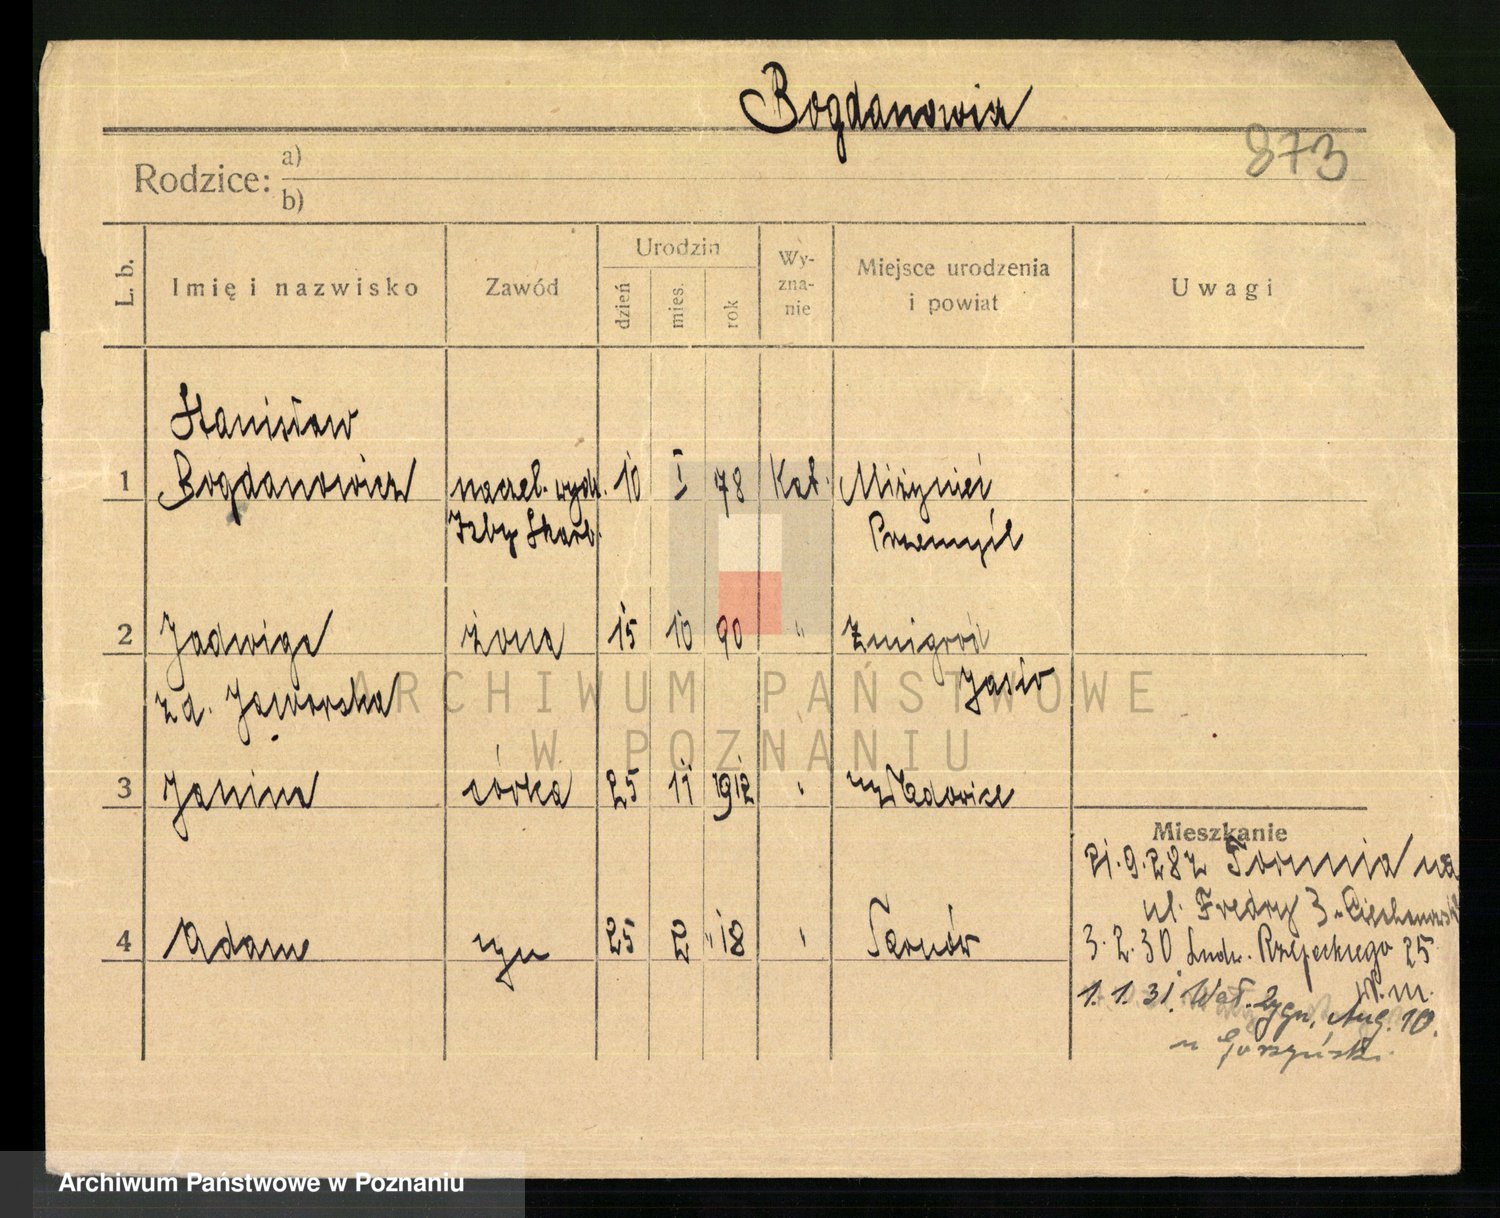 Bogdanowicz
873
Rodzice: a)
b)
L. b. Imię i nazwisko Zawód Urodzin dzień mies. rok Wyzna-nie Miejsce urodzenia i powiat Uwagi
Stanisław
1 Bogdanowicz naczel. wydz. 10 I 78 Kat. Miżyniec
Izby Skarb. Przemyśl
2 Jadwiga żona 15 10 90 " Żmigród
zd. Jaworska Jasło
3 Janina córka 25 11 1912 " Wadowice
Mieszkanie
21.9.28 z Torunia na
ul. Fredry 3
4 Adam syn 25 2 "18 " Tarnów
3.2.30 Ludw. Rzepeckiego 25
1.1.31. Wał. Zygm. Aug. 10.
ARCHIWUM PAŃSTWOWE
W POZNANIU
Archiwum Państwowe w Poznaniu